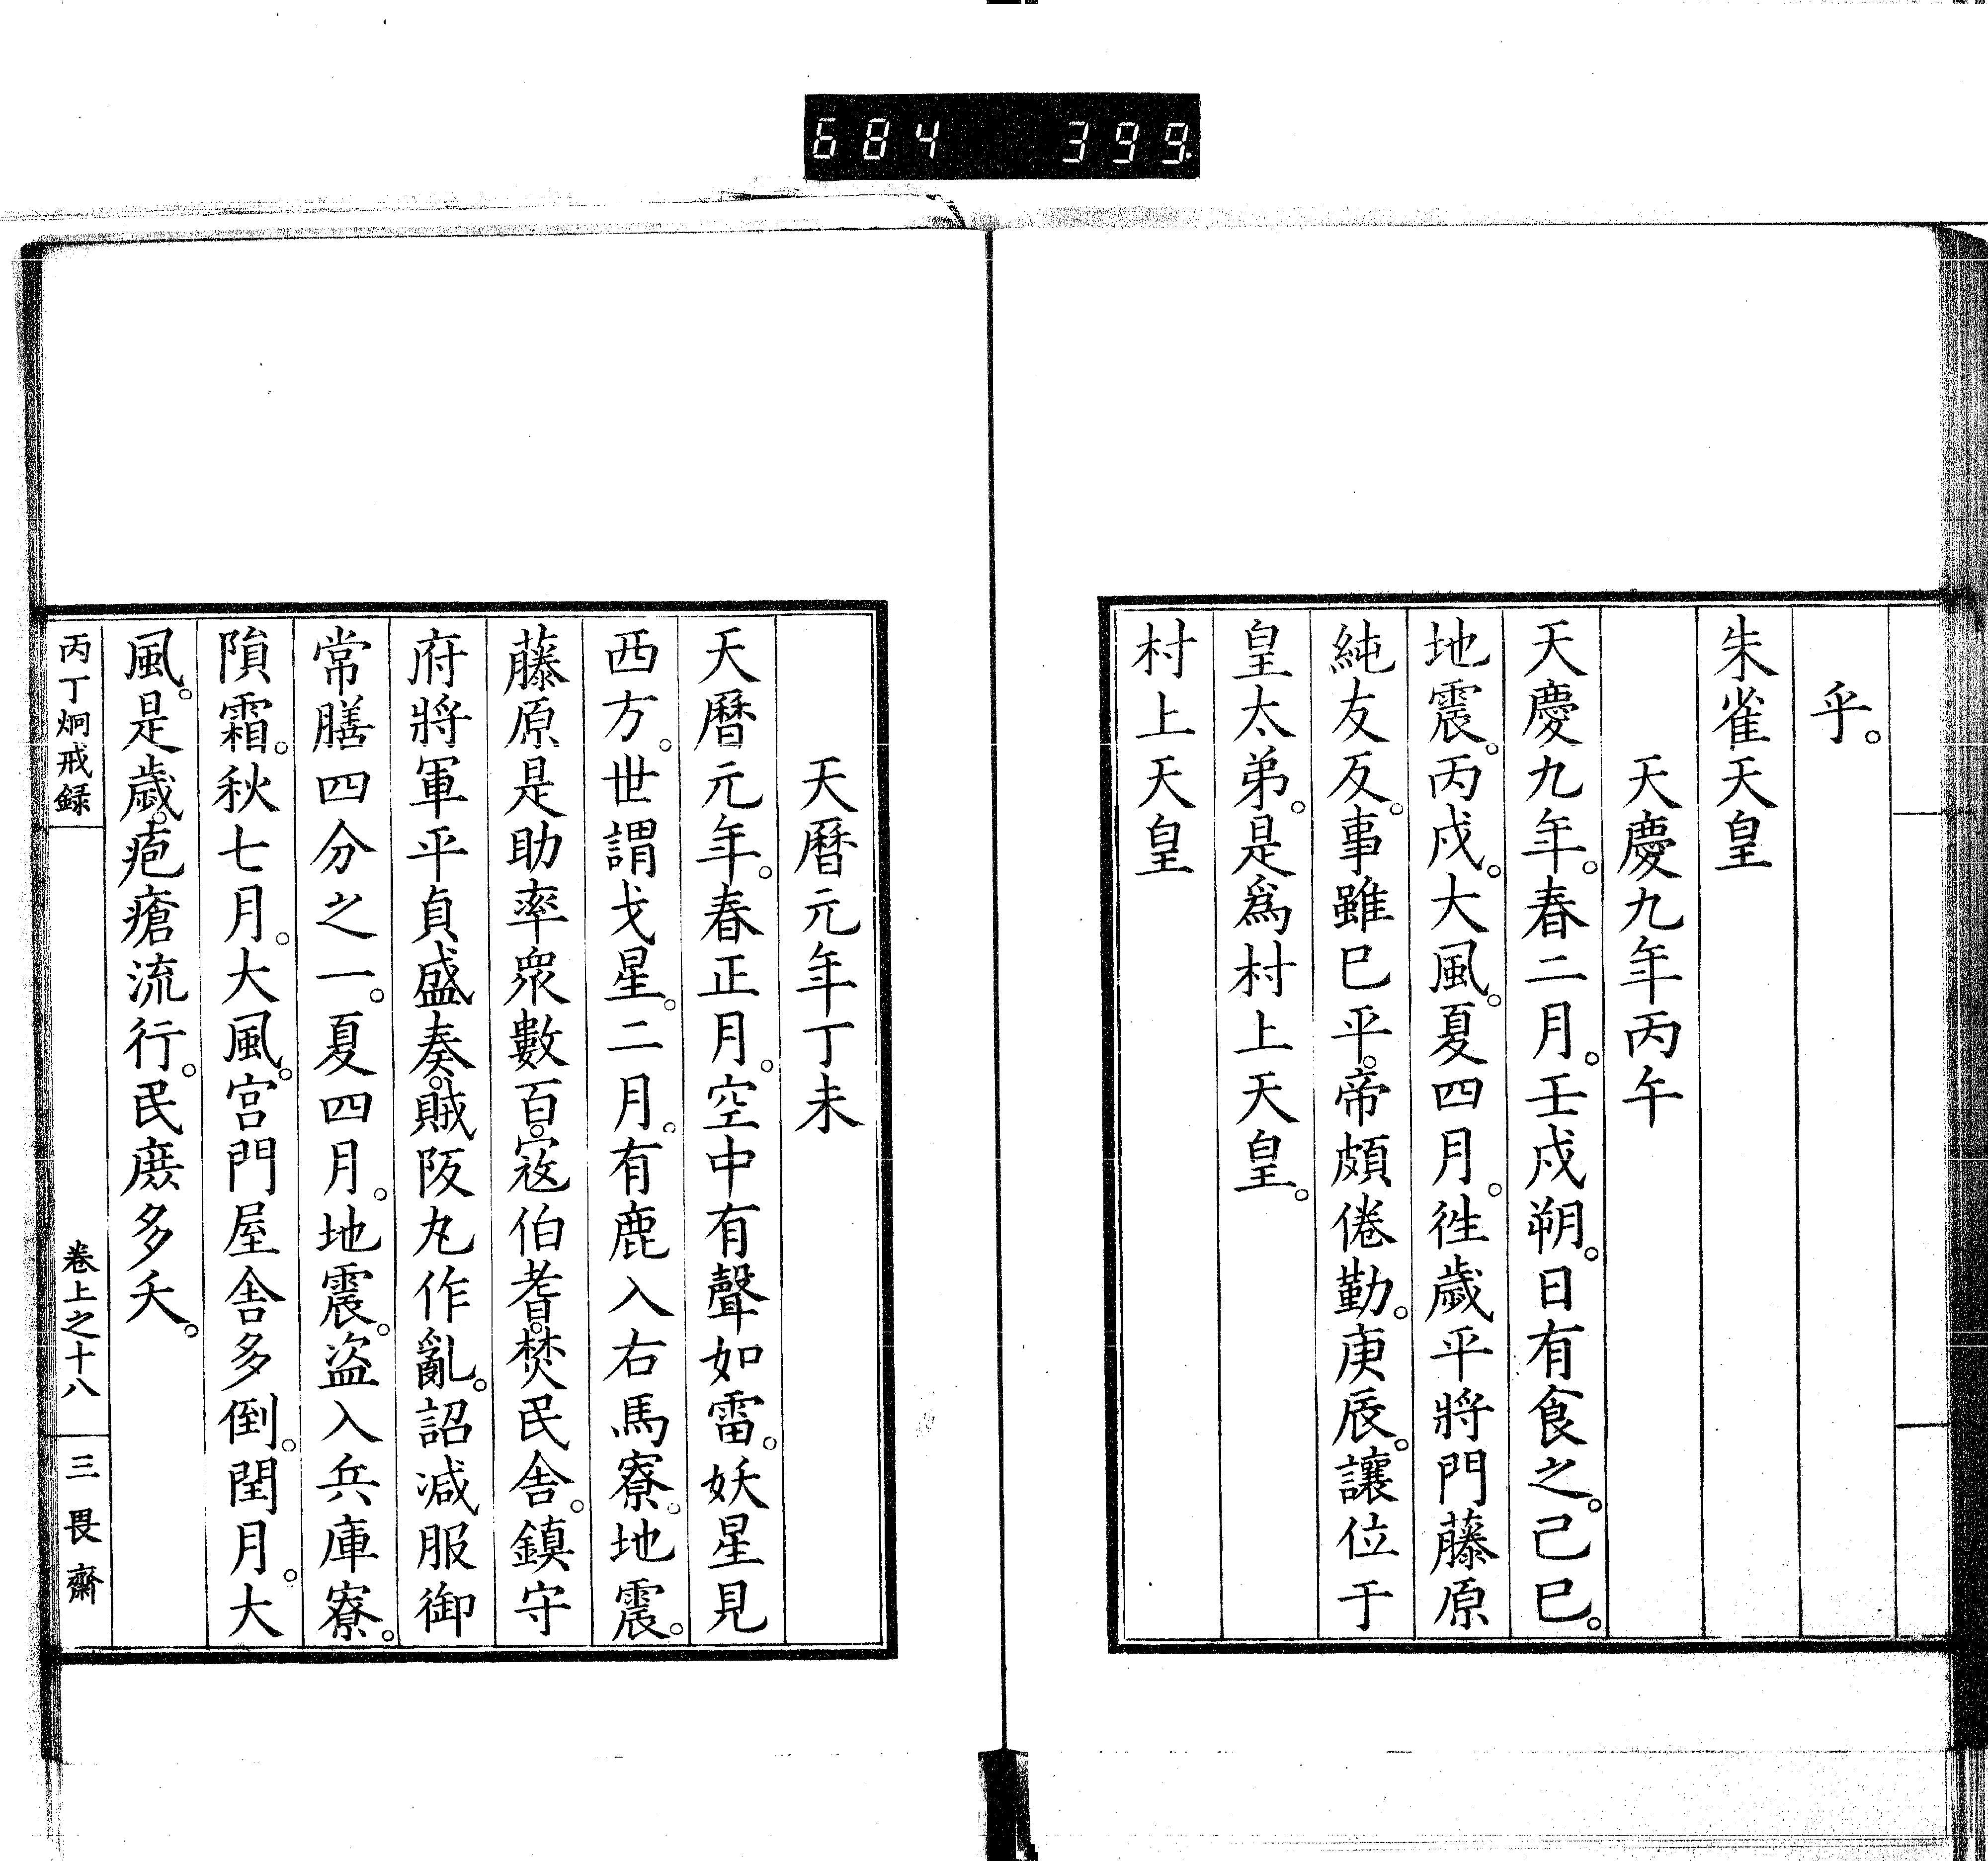 684 399.
乎。
朱雀天皇
天慶九年丙午
天慶九年。春二月。壬戌朔。日有食之。己巳。
地震。丙戌。大風。夏四月。徃歲平將門藤原
純友反。事雖巳平。帝頗倦勤。庚辰。讓位于
皇太弟。是爲村上天皇。
村上天皇
天曆元年丁未
天曆元年。春正月。空中有聲如雷。妖星見
西方。世謂戈星。二月。有鹿入右馬寮。地震。
藤原是助率衆數百。寇伯耆。焚民舎。鎮守
府將軍平貞盛奏。賊阪丸作亂。詔減服御
常膳四分之一。夏四月。地震。盗入兵庫寮。
隕霜。秋七月。大風。宮門屋舎多倒。閏月。大
風。是歲。疱瘡流行。民庶多夭。
丙丁炯戒録
卷上之十八
三畏齋